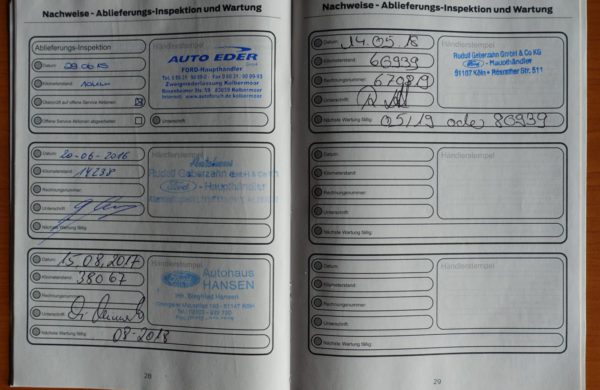 Nachweise - Ablieferungs-Inspektion und Wartung
Ablieferungs-Inspektion
Datum
Kilometerstand
Offene Service Aktionen abgearbeitet
Händlerstempel
AUTO EDER
FORD-Haupthändler
Zweigniederlassung Kolbermoor
Rosenheimer Str. 59 83059 Kolbermoor
Internet: www.autoforum.de.kolbermoor
Unterschrift
Datum 20-06-2016
Kilometerstand 14238
Rechnungsnummer
Unterschrift
Nächste Wartung fällig
Händlerstempel
Autohaus
Rudolf Geberzahn GmbH & Co KG
Ford - Haupthändler
Datum 15.08.2017
Kilometerstand 38067
Rechnungsnummer
Unterschrift
Nächste Wartung fällig 08-2018
Händlerstempel
Ford
Autohaus
HANSEN
Inh. Siegfried Hansen
28
Nachweise - Ablieferungs-Inspektion und Wartung
Datum 14.05.18
Kilometerstand 66939
Rechnungsnummer 679819
Unterschrift
Nächste Wartung fällig 05/19 oder 86939
Händlerstempel
Rudolf Geberzahn GmbH & Co KG
Ford - Haupthändler
51107 Köln • Rösrather Str. 511
Datum
Kilometerstand
Rechnungsnummer
Unterschrift
Nächste Wartung fällig
Händlerstempel
Datum
Kilometerstand
Rechnungsnummer
Unterschrift
Nächste Wartung fällig
Händlerstempel
29